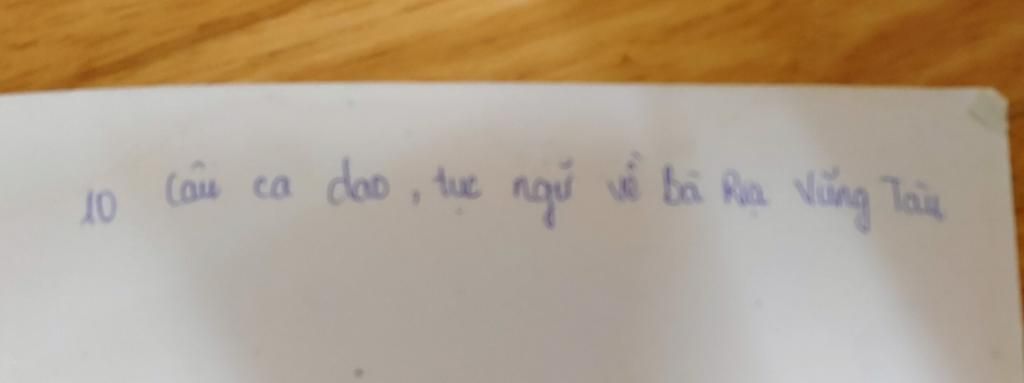 10 câu ca dao, tục ngữ về bà Rịa Vũng Tàu